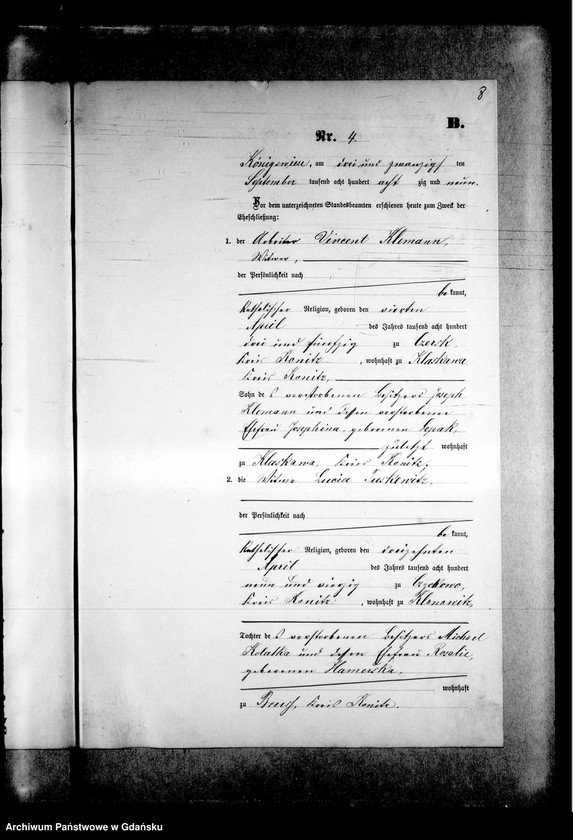 8
B.
Nr. 4.
Königswiese, am drei und zwanzig ten
September tausend acht hundert acht zig und neun.
Vor dem unterzeichneten Standesbeamten erschienen heute zum Zweck der
Eheschließung:
1. der Arbeiter Vincent Klemann,
Witwer,
der Persönlichkeit nach
be kannt,
katholischer Religion, geboren den vierten
April des Jahres tausend acht hundert
drei und fünfzig zu Czersk
Kreis Konitz, wohnhaft zu Klaskawa,
Kreis Konitz,
Sohn des verstorbenen Besitzers Joseph
Klemann und dessen verstorbener
Ehefrau Josephina, geborenen
zuletzt wohnhaft
zu Klaskawa, Kreis Konitz.
2. die Witwe Lucia Tuskewitz,
der Persönlichkeit nach
be kannt,
katholischer Religion, geboren den dreizehnten
April des Jahres tausend acht hundert
neun und vierzig zu
Kreis Konitz, wohnhaft zu
Tochter des verstorbenen Besitzers Michael
Kolatka und dessen Ehefrau Rosalie,
geborenen Hamerska,
wohnhaft
zu Bruss, Kreis Konitz.
Archiwum Państwowe w Gdańsku